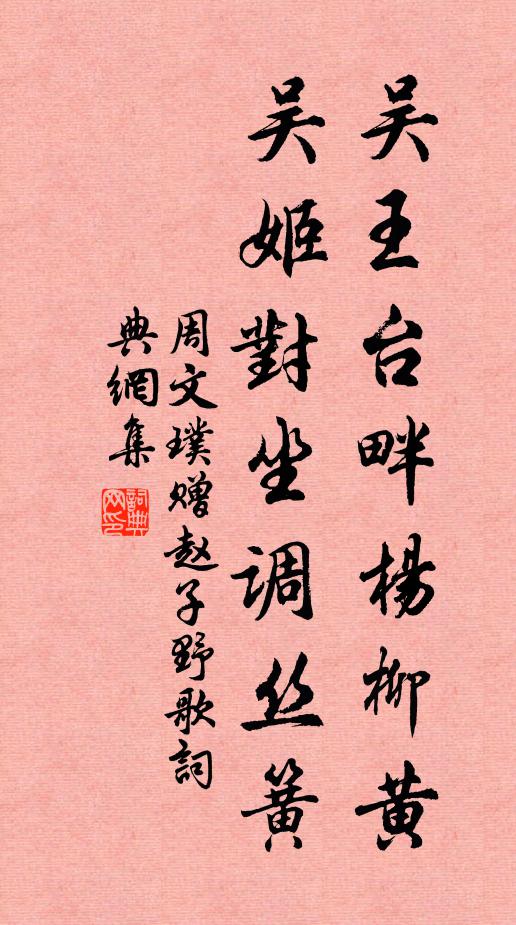 吴王台畔楊柳黄
吴姬對坐调丝簧
周文璞赠赵子野歌詞
典網集
詞典网印